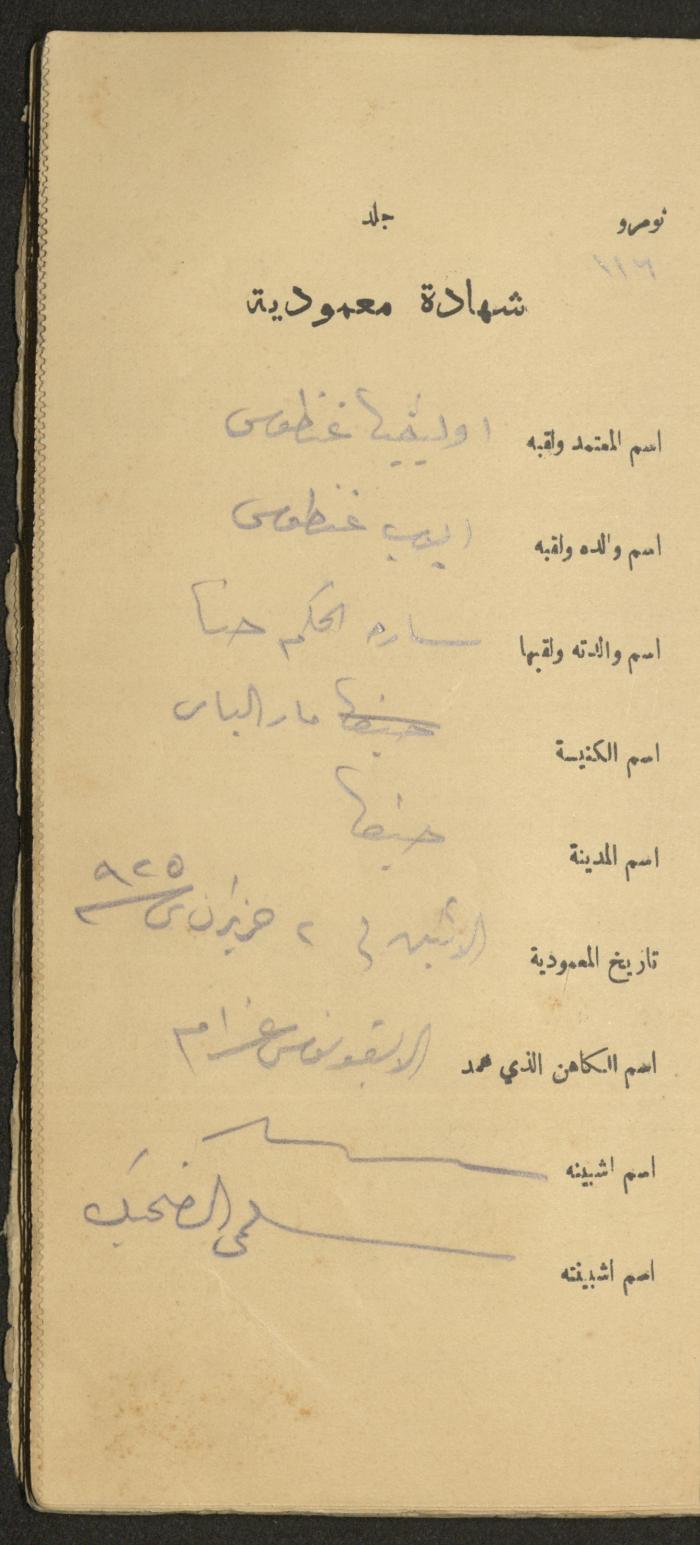 نومرو جلد
١١٦
شهادة معمودية
اسم المعتمد ولقبه اوليڤيا غنطوس
اسم والده ولقبه اديب غنطوس
اسم والدته ولقبها ساره الحكم حنا
اسم الكنيسة حيفا مار الياس
اسم المدينة حيفا
تاريخ المعمودية الاثنين في ٢ حزيران س ٩٢٥
اسم الكاهن الذي عمد الايقونوموس
اسم اشبينه
اسم اشبينته سلمى